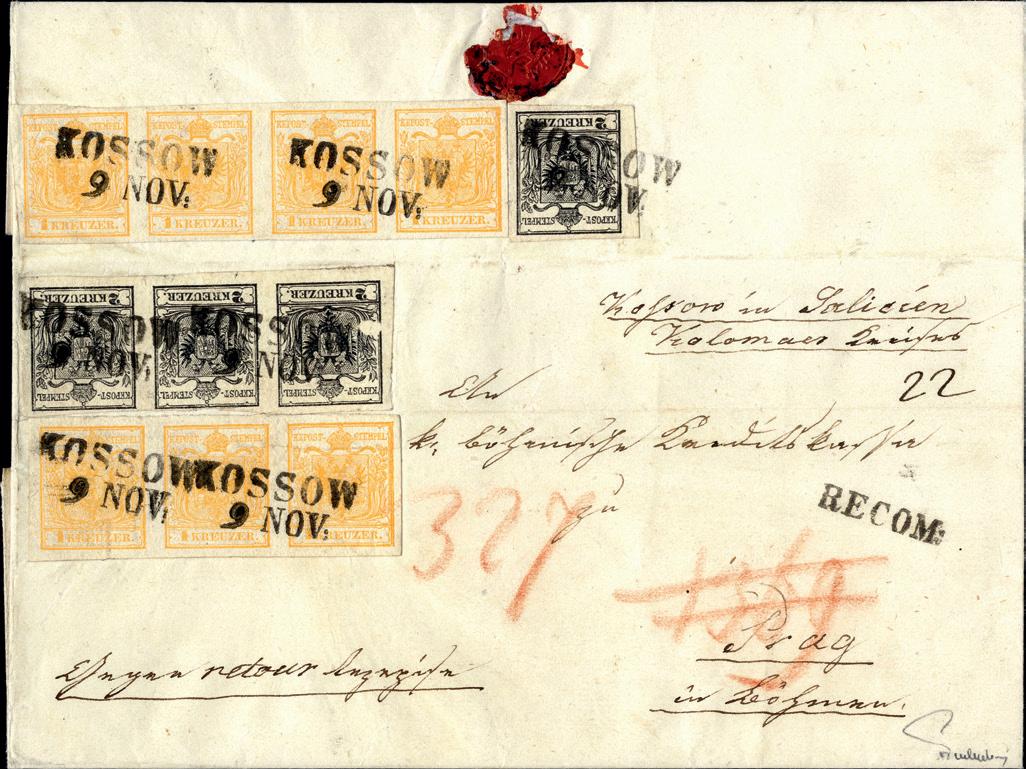 KKPOST-STEMPEL KKPOST-STEMPEL KKPOST-STEMPEL KKPOST-STEMPEL 2 KREUZER
KOSSOW KOSSOW KOSSOW
9 NOV: 9 NOV:
1 KREUZER. 1 KREUZER. 1 KREUZER. 1 KREUZER. KKPOST-STEMPEL
2 KREUZER 2 KREUZER 2 KREUZER
KOSSOW KOSSOW
9 NOV: 9 NOV:
KKPOST-STEMPEL KKPOST-STEMPEL KKPOST-STEMPEL
Kossow in Galicien
Kolomaer Kreises
22
An
KKPOST-STEMPEL KKPOST-STEMPEL KKPOST-STEMPEL
k. böhmische Kreditskassa
KOSSOW KOSSOW
9 NOV: 9 NOV:
1 KREUZER. 1 KREUZER. 1 KREUZER.
327
zu
RECOM:
Prag
in Böhmen.
Gegen retour Rezepisse